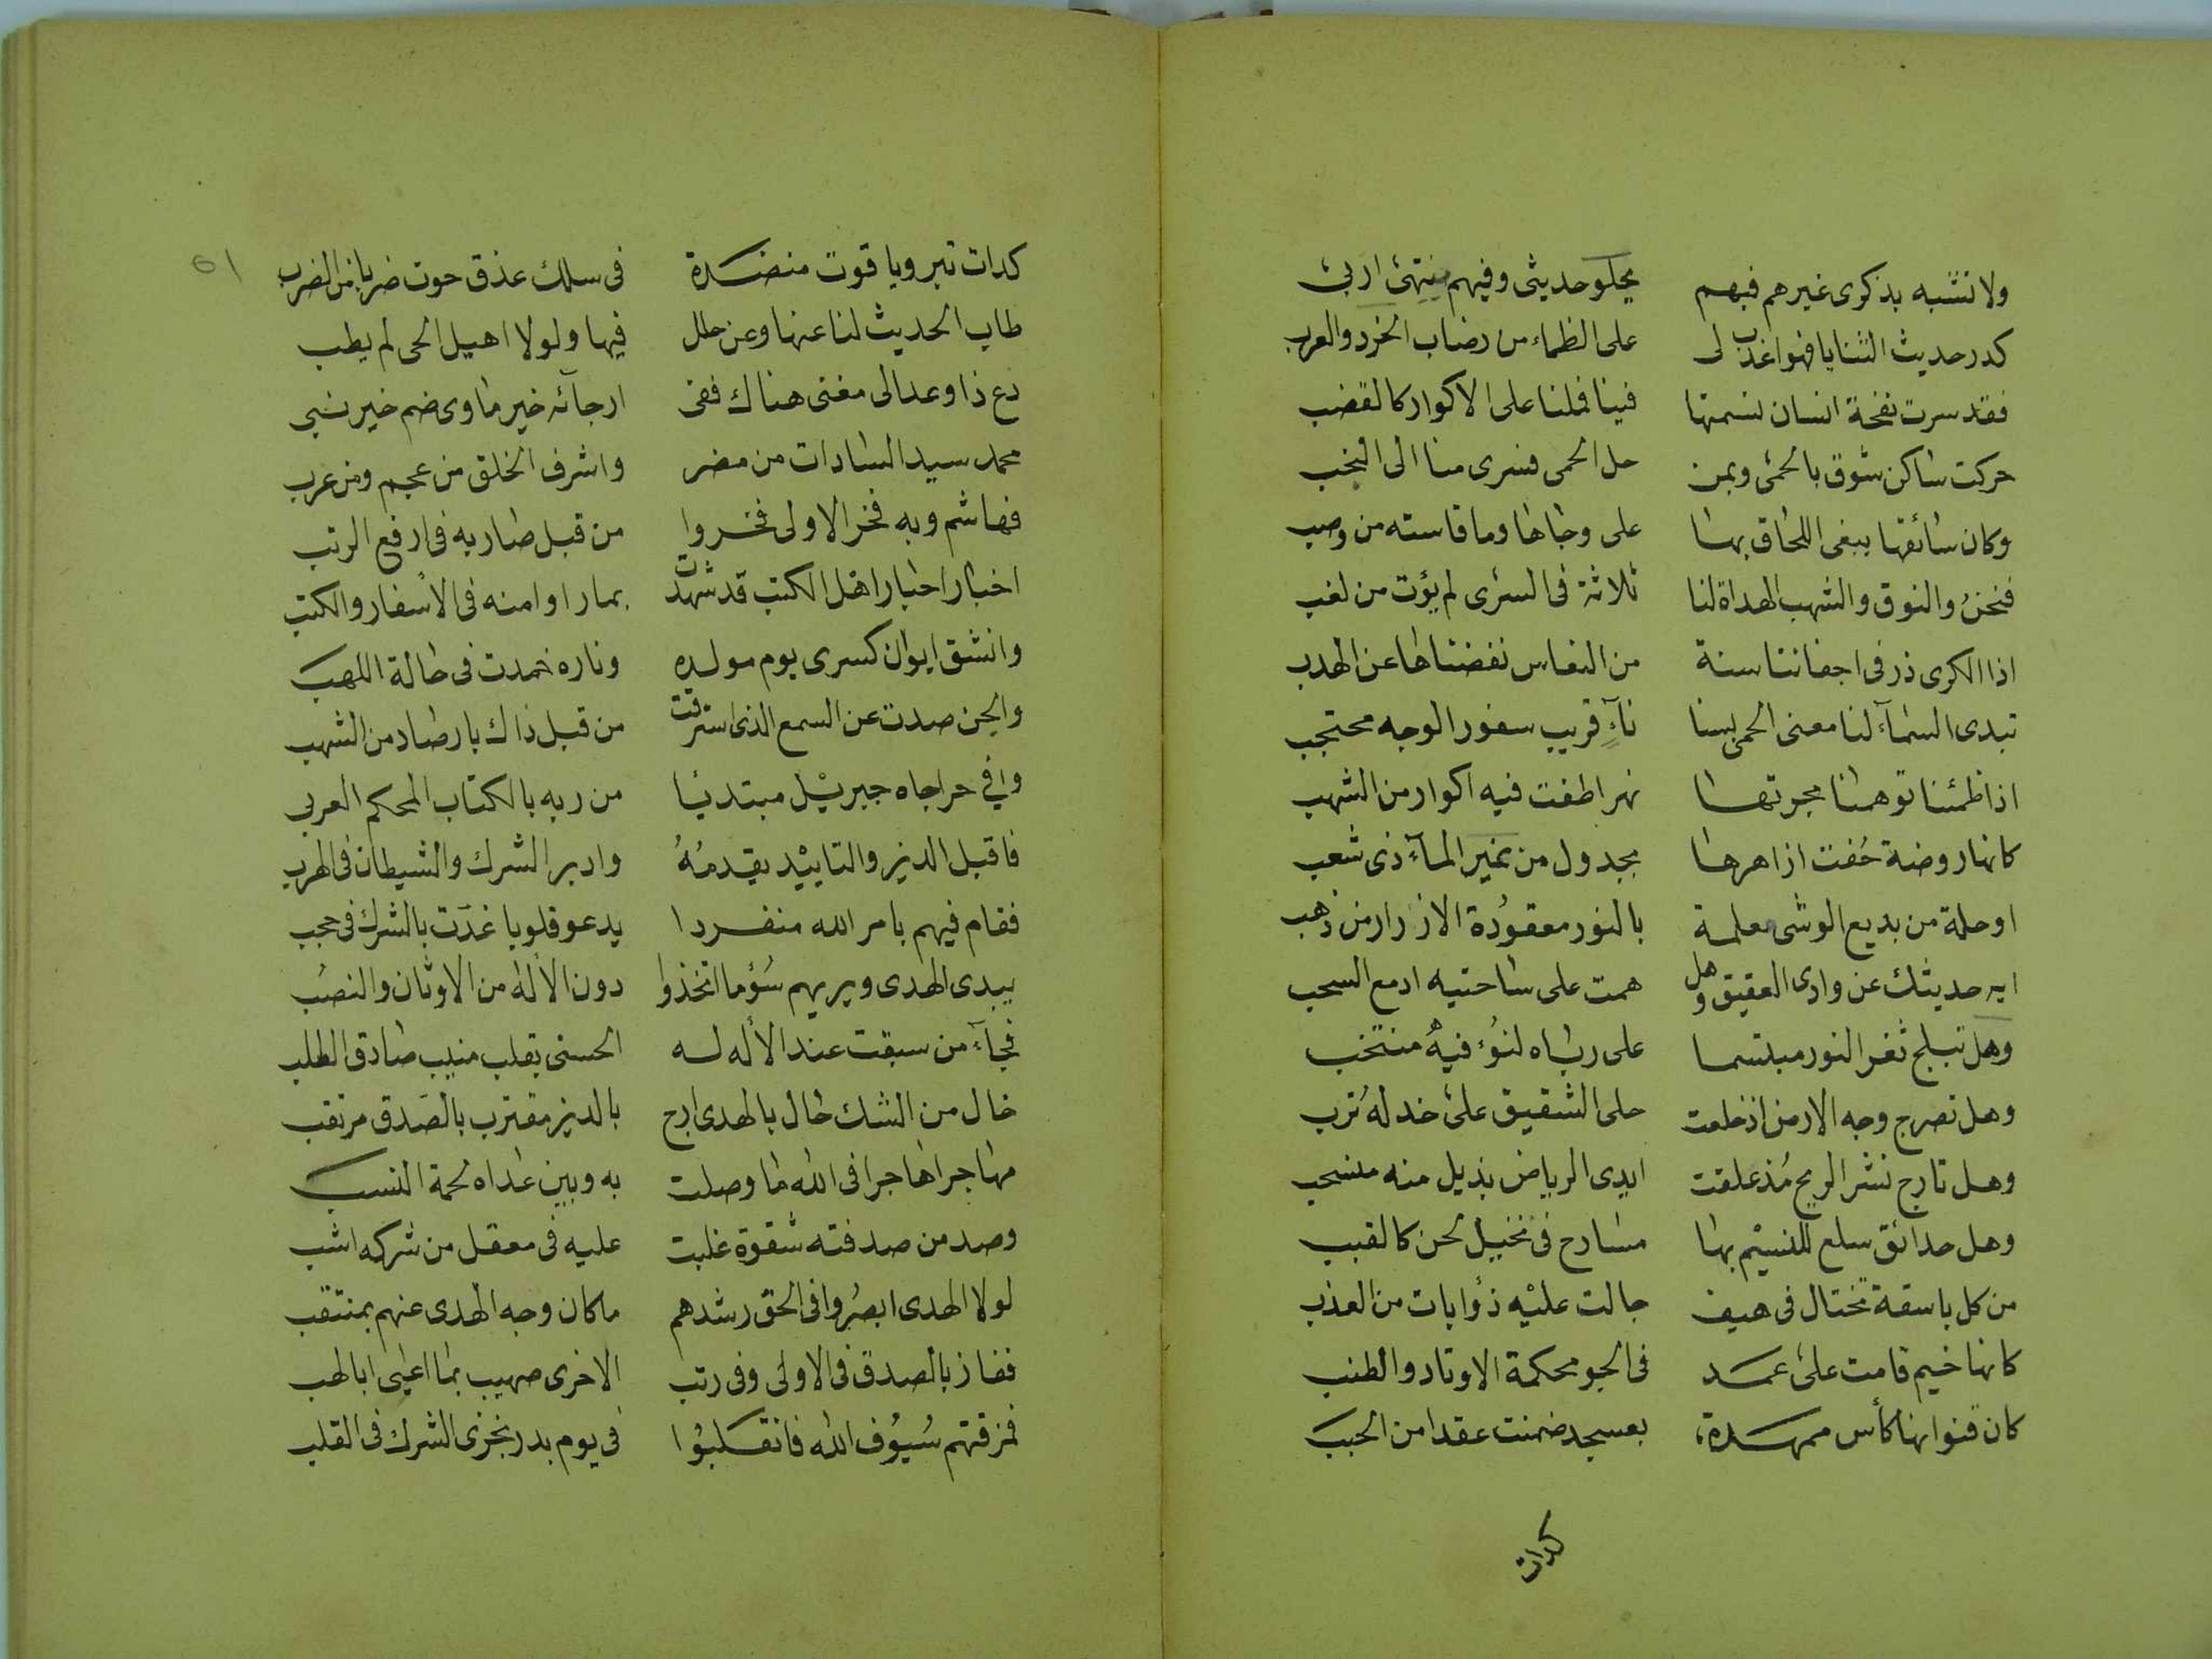 ولا تشبه بذكرى غيرهم فبهم يحلو حديثى وفيهم منتهى اربى
كدر حديث الثنايا فهو اعذب لى على الظماء من رضاب الخرد والعرب
فقد سرت نفحة انسان نسمتها فينا فملنا على الاكوار كالقضب
حركت ساكن شوق بالحمى وبمن حل الحمى فسرى منا الى النجب
وكان سائقها يبغى اللحاق بها على وجاها وما قاسته من وصب
فنحن والنوق والشهب الهداة لنا ثلاثة فى السرى لم يؤت من لغب
اذا الكرى ذر فى اجفاننا سنة من النعاس نفضناها عن الهدب
تبدى السمآء لنا معنى الحمى بسنا نآءٍ قريب سفور الوجه محتجب
اذا ظمئنا توهمنا مجرتها نهرا طفت فيه اكوار من الشهب
كانها روضة حُفت ازاهرها بجدول من نمير المآء ذى شعب
او حلة من بديع الوشى معلمة بالنور معقودة الازرار من ذهب
ايه حديثك عن وادى العقيق وهل همت على ساحتيه ادمع السحب
وهل تبلج ثغر النور مبتسما على رباه لنوء فيه منتخب
وهل تضرج وجه الارض اذ خلعت حلى الشقيق على خد له تُرب
وهل تارج نشر الريح مُذ علقت ايدى الرياض بذيل منه منسحب
وهل حدائق سلع للنسيم بها مسارح فى نخيل لحن كالقبب
من كل باسقة تختال فى هيف جالت عليه ذؤابات من العذب
كانها خيم قامت على عمد فى الجو محكمة الاوتاد والطنب
كان قنوانها كأس ممهدة بعسجد ضمنت عقدا من الحبب
كدات
٥١
كدات تبر وياقوت منضدة فى سلك عذق حوت ضربا من الضرب
طاب الحديث لنا عنها وعن حلل فيها ولولا اهيل الحى لم يطب
دع ذا وعد الى مغنى هناك ففى ارجآئه خير ماوى ضم خير نبى
محمد سيد السادات من مضر واشرف الخلق من عجم ومن عرب
فهاشم وبه فخر الاولى فخروا من قبل صار به فى ارفع الرتب
اخبار احبار اهل الكتب قد شهدت بما راوا منه فى الاسفار والكتب
وانشق ايوان كسرى يوم مولده وناره خمدت فى حالة اللهب
والجن صدت عن السمع الذى استرقت من قبل ذاك بارصاد من الشهب
وافى حرا جاه جبريل مبتديا من ربه بالكتاب المحكم العربى
فاقبل الدين والتاييد يقدمُهُ وادبر الشرك والشيطان فى الهرب
فقام فيهم بامر الله منفردا يدعو قلوبا غدت بالشرك فى حجب
يبدى الهدى ويريهم سُؤما اتخذوا دون الاله من الاوثان والنصب
فجآء من سبقت عند الاله له الحسنى بقلب منيب صادق الطلب
خال من الشك حال بالهدى ارج بالدين مقترب بالصدق مرتقب
مهاجرا هاجرا فى الله ما وصلت به وبين عداه لحمة النسب
وصد من صدفته شقوة غلبت عليه فى معقل من شركه اشب
لولا الهدى ابصروا فى الحق رشدهم ما كان وجه الهدى عنهم بمنتقب
ففاز بالصدق فى الاولى وفى رتب الاخرى صهيب بما اعيى ابا لهب
فمزقتهم سُيُوف الله فانقلبُوا فى يوم بدر بخزى الشرك فى القلب